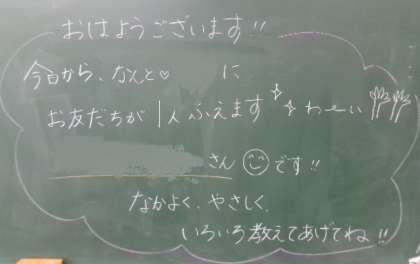 おはようございます!!
今日から、なんと♡ に
お友だちが1人ふえます わーい
さん です!!
なかよく、やさしく、
いろいろ教えてあげてね!!